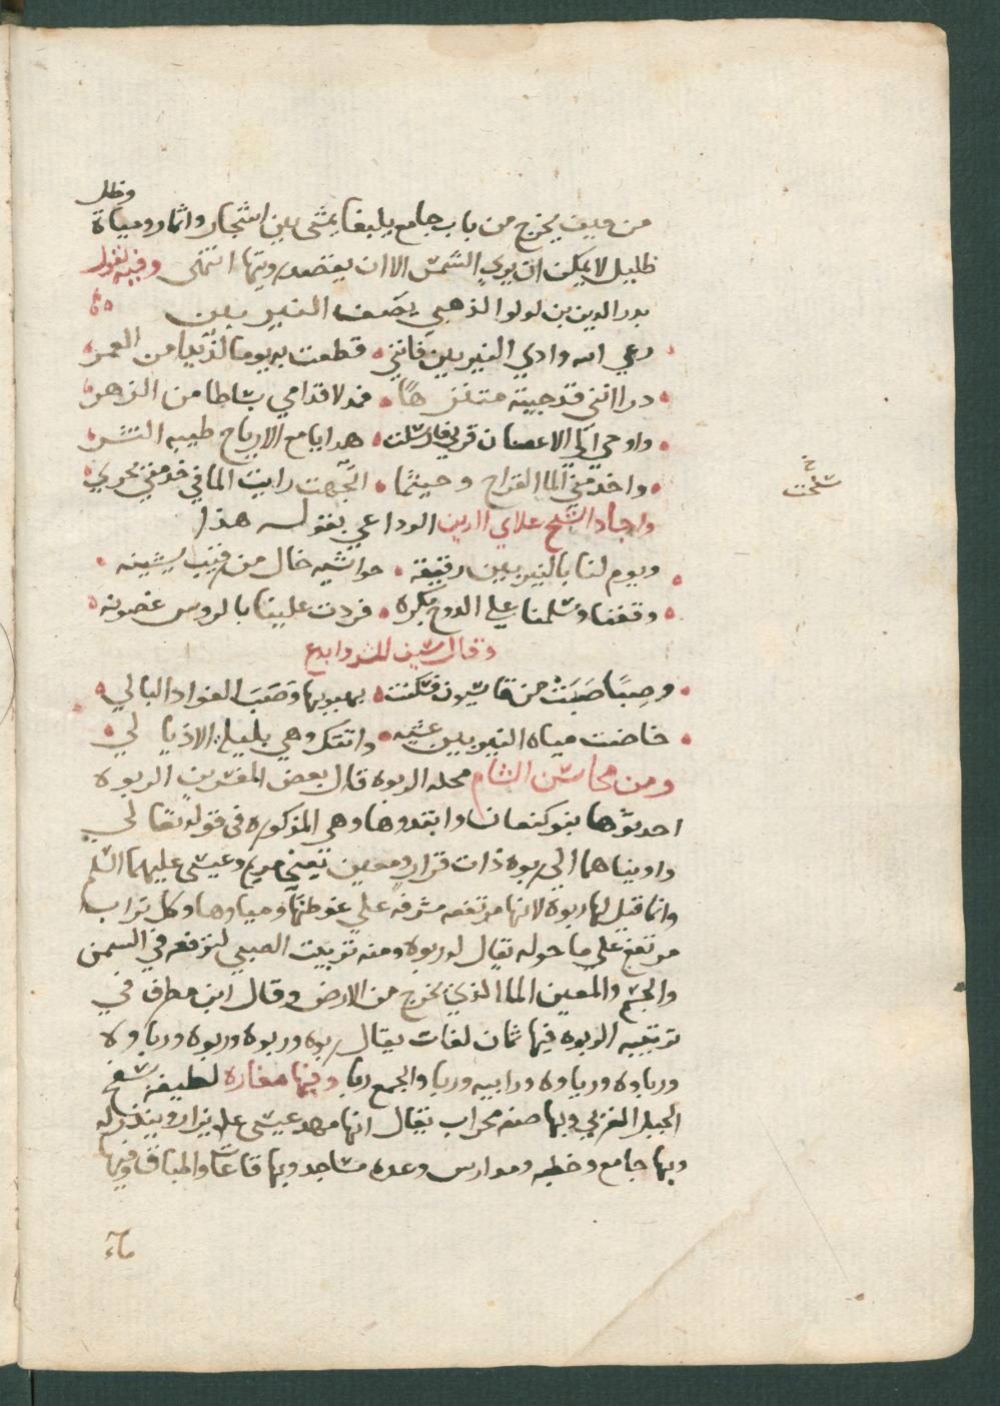 من حيث يخرج من باب جامع يلبغا يمشى بين اشجار واثمار ومياة وظل
ظليل لا يمكن ان يري الشمس الا ان يقصد رويتها انتهى وفيه يقول
بدر الدين بن لولو الذهبي يصف النيربين
رعي الله وادي النيربين فانني قطعت به يوما لذيذا من العمر
درا انني قد جيته متنزها فمد لاقدامي بساطا من الزهر
واوحي الي الاغصان قربي فارسلت هدايا مع الارياح طيبه النشر
واخدمني الما القراح وحيثما اتجهت رايت الما في خدمتي يجري
واجاد الشيخ علاي الدين الوداعي بقوله هذا
ويوم لنا بالنيربين رقيقة حواشيه خال من رقيب يشينه
وقفنا وسلمنا علي الدوح بكره فردت علينا بالروس غصونه
وقال سيف الدين وابدع
وصبًا صَبَتْ من قاسيون فسكنت بهبوبها وصَبَ الفواد البالي
خاضت مياه النيربين عشيه واتتك وهي بليلة الاذيالي
ومن محاسن الشام محله الربوه قال بعض المفسرين الربوه
احدثوها بنو كنعان وابتدوها وهي المذكوره في قوله تعالي
واويناهما الي ربوه ذات قرار ومعين يعني مريم وعيسى عليهما السلم
وانما قيل لها ربوة لانها مرتفعه مشرفه علي غوطتها ومياوها وكل تراب
مرتفع علي ما حوله يقال له ربوه ومنه تربيت الصبي لترفعه في السمن
والجسم والمعين الما الذي يخرج من الارض وقال ابن مطرف في
ترتيبه الربوه فيها ثمان لغات يقال ربوه وربوه وربوه ورباوه
ورباوه ورباوه ورابيه وربا والجمع ربا وفيها مغاره لطيفة بسفح
الجبل الغربي وبها صفه محراب يقال انها مهد عيسى علم يزار وينذر له
وبها جامع وخطبه ومدارس وعده مساجد وبها قاعات واطباق وفيها
ماء
خ
سلمت